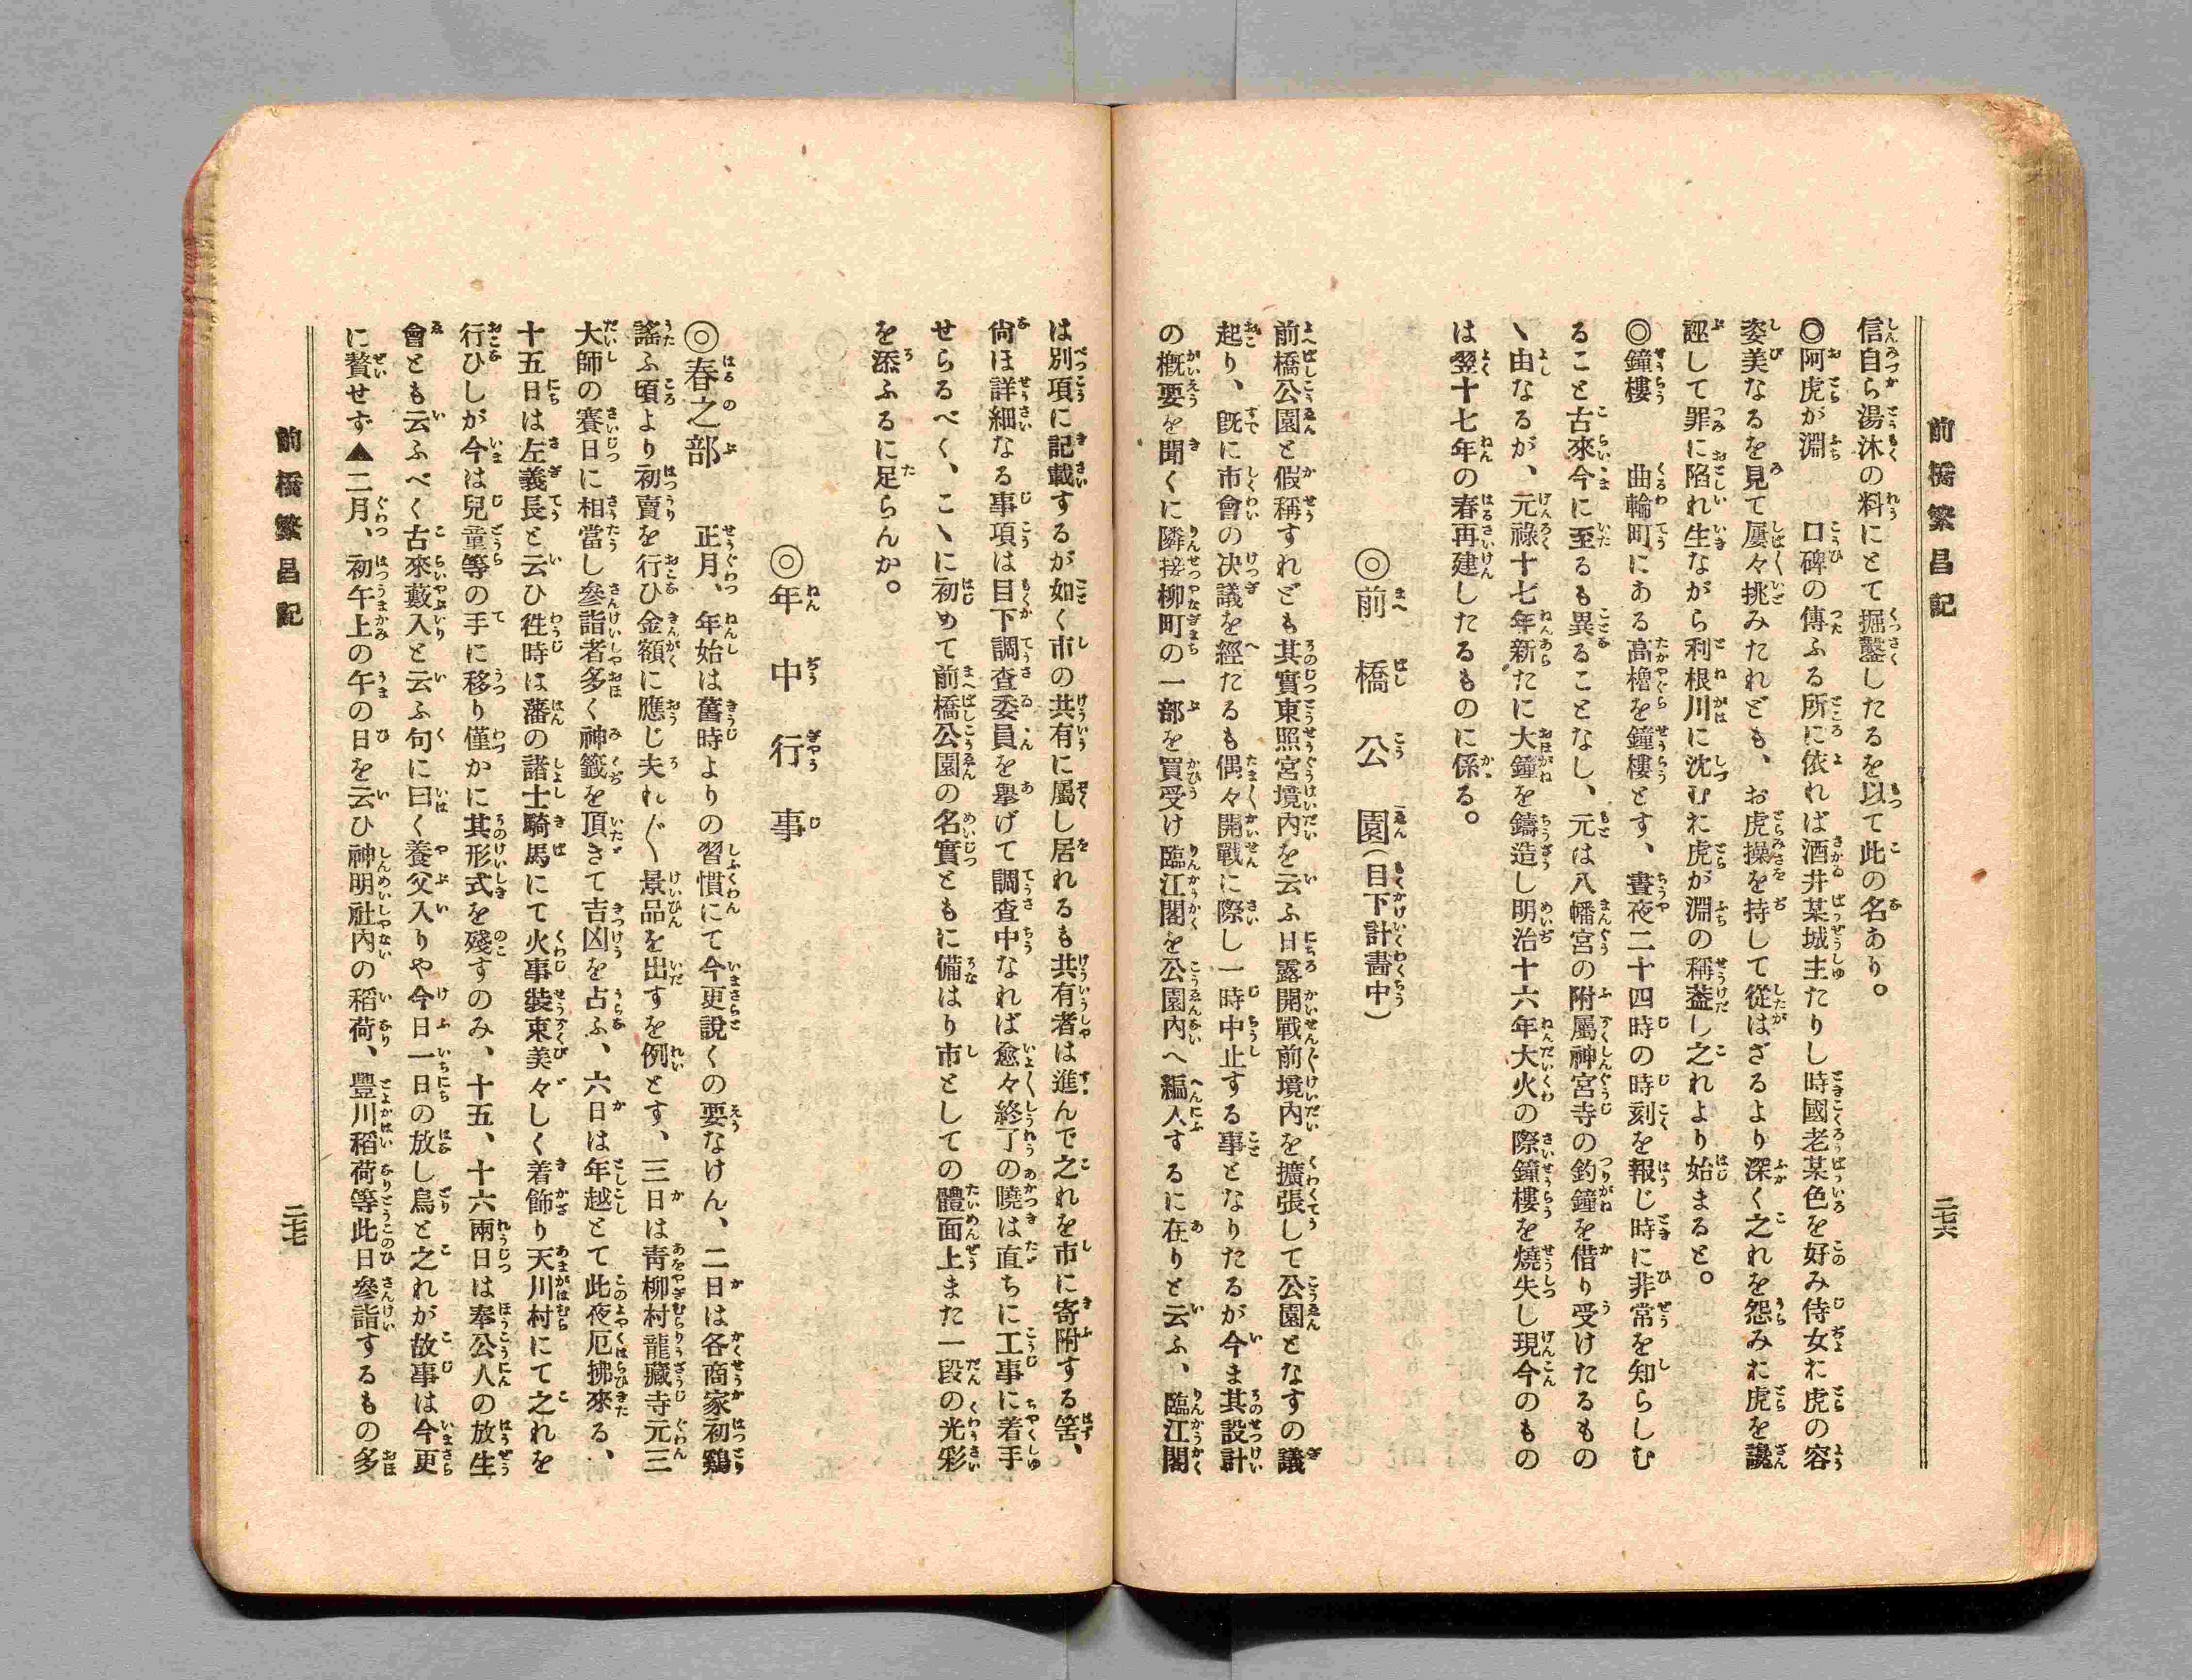 前橋繁昌記
二七六
信自ら湯沐の料にとて掘鑿したるを以て此の名あり。
◎阿虎が淵　口碑の傳ふる所に依れば酒井某城主たりし時國老某色を好み侍女お虎の容
姿美なるを見て屢々挑みたれども、お虎操を持して從はざるより深く之れを怨みお虎を讒
誣して罪に陷れ生ながら利根川に沈むお虎が淵の稱葢し之れより始まると。
◎鐘樓　曲輪町にある高櫓を鐘樓とす、晝夜二十四時の時刻を報じ時に非常を知らしむ
ること古來今に至るも異ることなし、元は八幡宮の附屬神宮寺の釣鐘を借り受けたるもの
ゝ由なるが、元祿十七年新たに大鐘を鑄造し明治十六年大火の際鐘樓を燒失し現今のもの
は翌十七年の春再建したるものに係る。
◎前橋公園（目下計畵中）
前橋公園と假稱すれども其實東照宮境內を云ふ日露開戰前境內を擴張して公園となすの議
起り、旣に市會の决議を經たるも偶々開戰に際し一時中止する事となりたるが今ま其設計
の槪要を聞くに隣接柳町の一部を買受け臨江閣を公園內へ編入するに在りと云ふ、臨江閣
は別項に記載するが如く市の共有に屬し居れるも共有者は進んで之れを市に寄附する筈、
尙ほ詳細なる事項は目下調査委員を擧げて調査中なれば愈々終了の曉は直ちに工事に着手
せらるべく、こゝに初めて前橋公園の名實ともに備はり市としての體面上また一段の光彩
を添ふるに足らんか。
◎年中行事
◎春之部　正月、年始は舊時よりの習慣にて今更說くの要なけん、二日は各商家初鷄
謠ふ頃より初賣を行ひ金額に應じ夫れ〴〵景品を出すを例とす、三日は靑柳村龍藏寺元三
大師の賽日に相當し參詣者多く神籤を頂きて吉凶を占ふ、六日は年越とて此夜厄拂來る、
十五日は左義長と云ひ徃時は藩の諸士騎馬にて火事裝束美々しく着飾り天川村にて之れを
行ひしが今は兒童等の手に移り僅かに其形式を殘すのみ、十五、十六兩日は奉公人の放生
會とも云ふべく古來藪入と云ふ句に曰く養父入りや今日一日の放し鳥と之れが故事は今更
に贅せず▲二月、初午上の午の日を云ひ神明社內の稻荷、豐川稻荷等此日參詣するもの多
前橋繁昌記
二七七